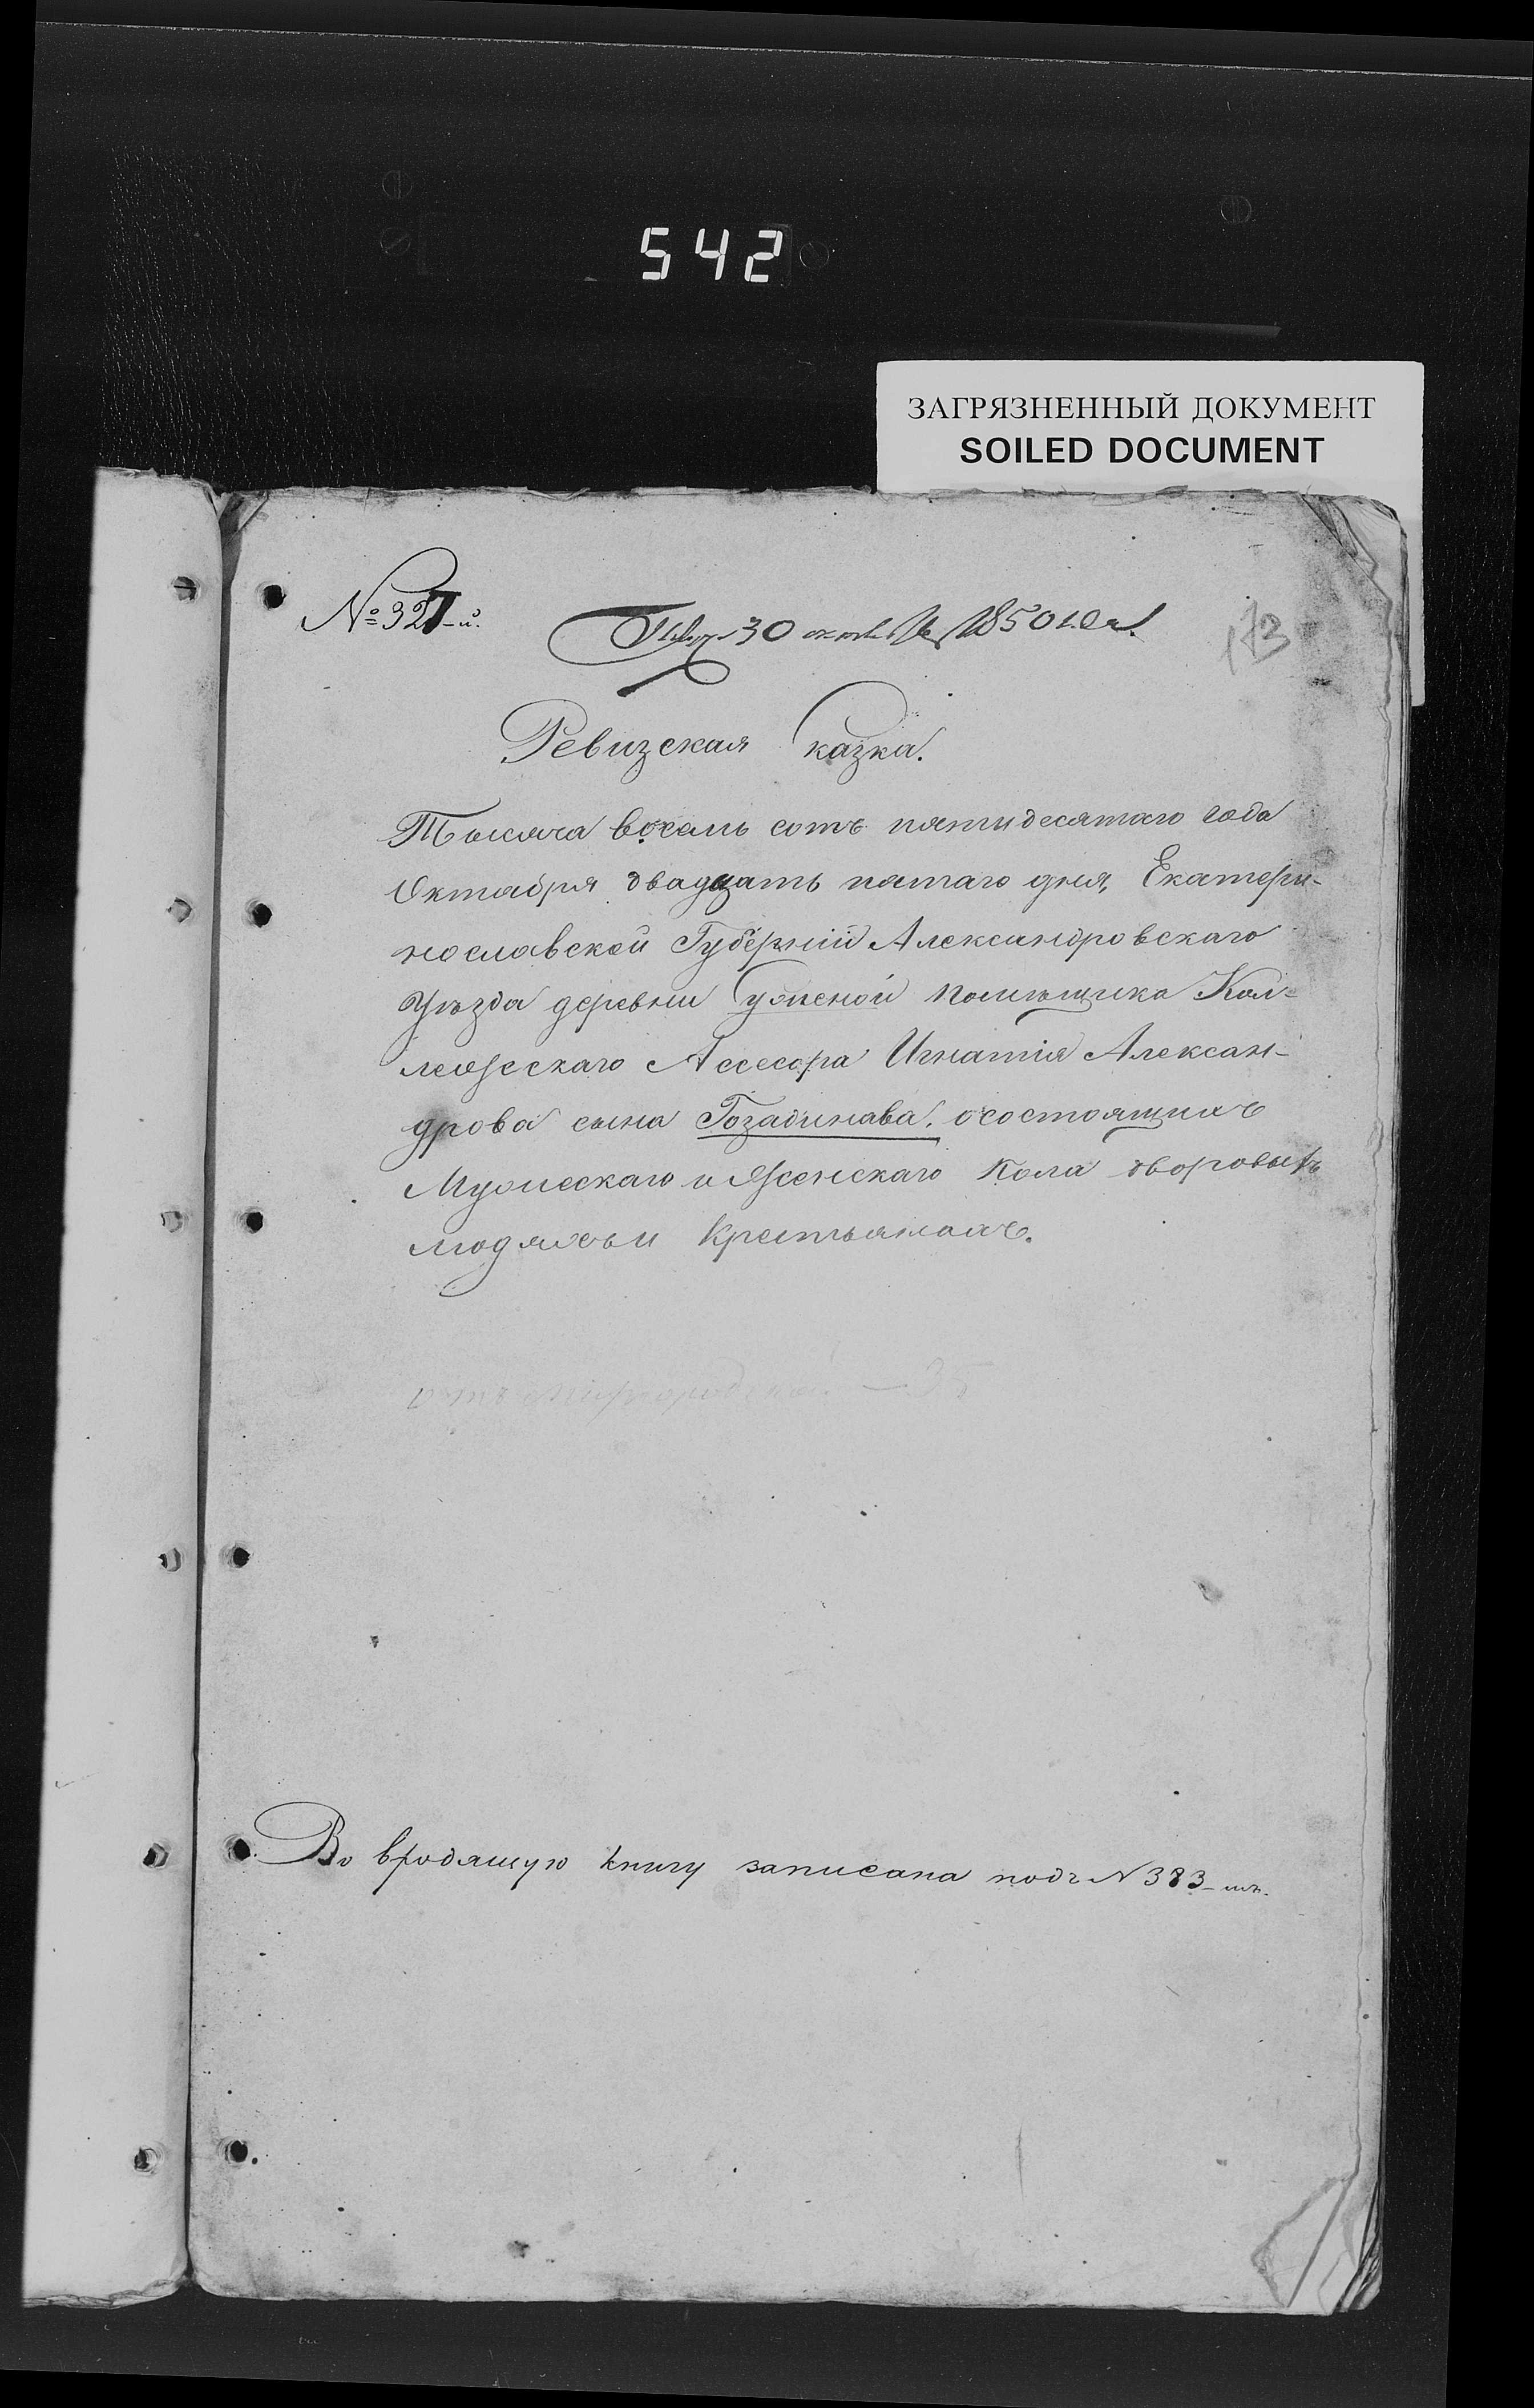 542
ЗАГРЯЗНЕННЫЙ ДОКУМЕНТ
SOILED DOCUMENT
№ 321-й.
30 1850 года.
173
Ревизская Сказка.
Тысяча восемь сотъ пятидесятаго года
Октября двадцать пятаго дня, Екатери-
нославской Губерніи Александровскаго
Уѣзда деревни помѣщика Кол-
лежескаго Ассесора Игнатія Алексан-
дрова сына Гозадинава. осостоящихъ
Мужескаго и Женскаго Пола дворовыхъ
людяхъ и Крестьянахъ.
35
Во входящую книгу записана подъ N 383-мъ.